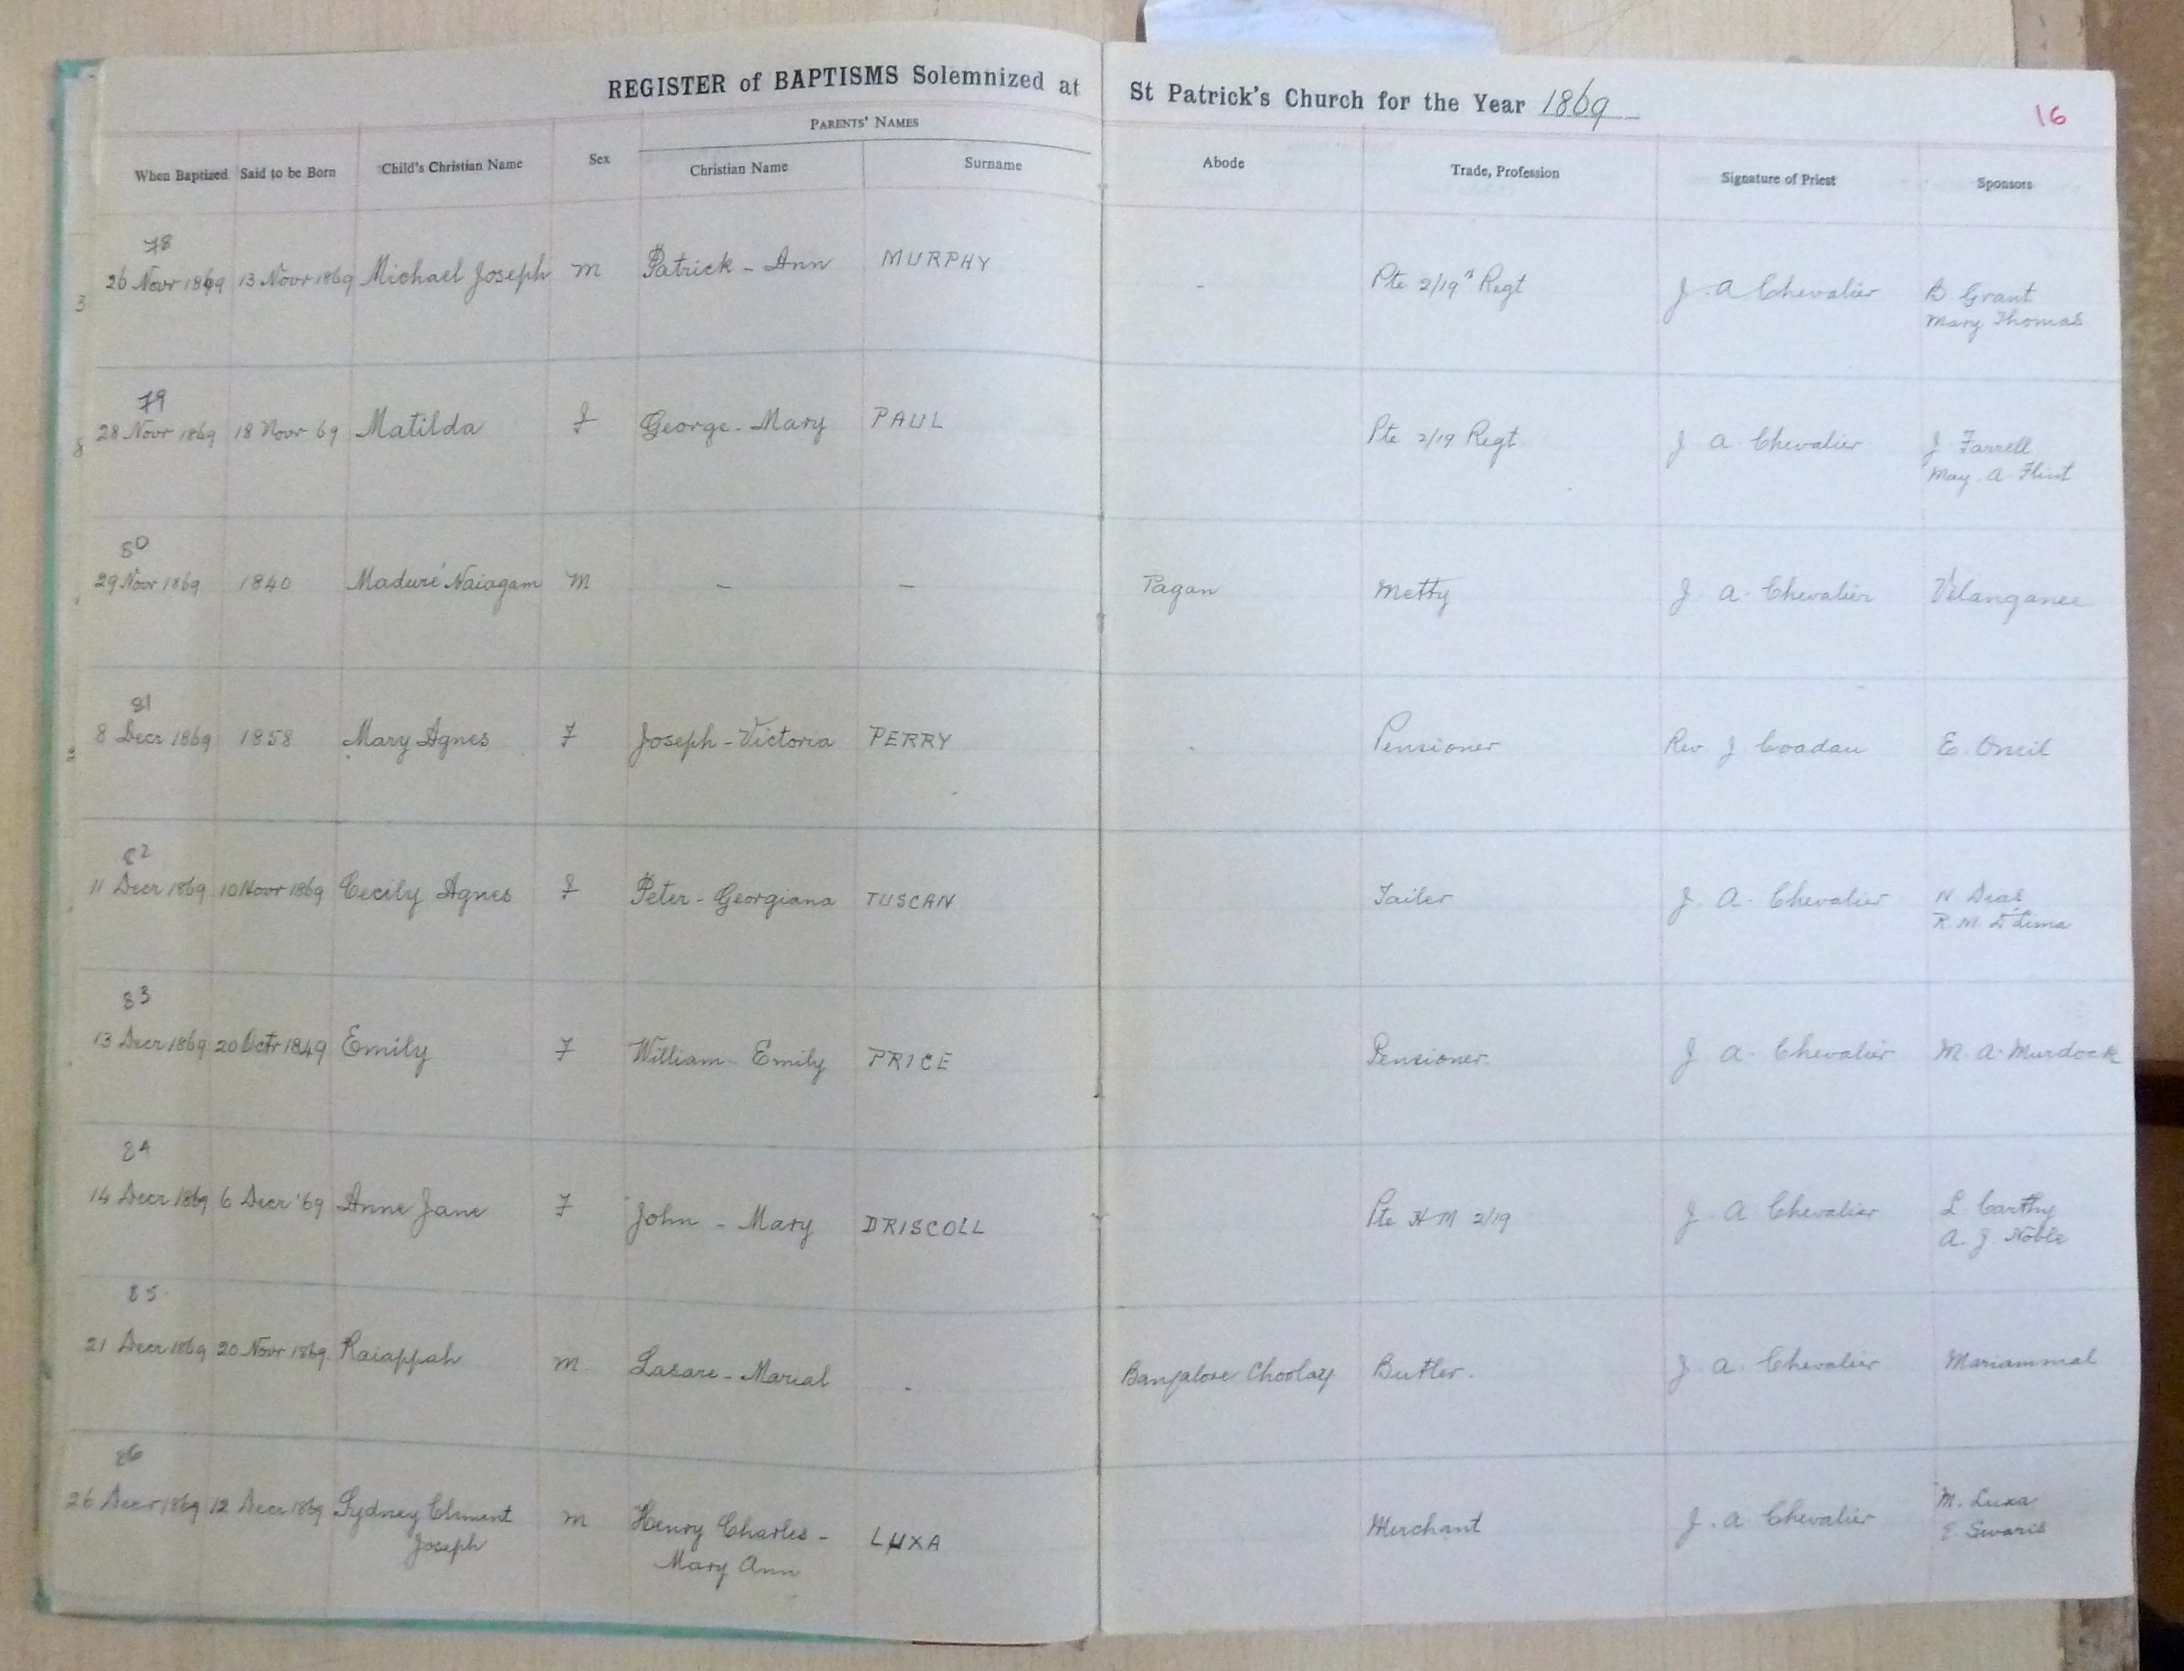 REGISTER of BAPTISMS Solemnized at St Patrick's Church for the Year 1869
16
PARENTS' NAMES
When Baptized Said to be Born Child's Christian Name Sex Christian Name Surname Abode Trade, Profession Signature of Priest Sponsors
78
26 Novr 1869 13 Novr 1869 Michael Joseph M Patrick - Ann MURPHY - Pte 2/19th Regt J. A Chevalier B. Grant
Mary Thomas
79
28 Novr 1869 18 Novr 69 Matilda F George - Mary PAUL Pte 2/19 Regt J. A Chevalier J Farrell
May. A. Flint
80
29 Novr 1869 1840 Maduré Naiagam M - - Pagan Metty J. A. Chevalier Vélanganee
81
8 Decr 1869 1858 Mary Agnes F Joseph - Victoria PERRY Pensioner Rev J Coadau E. Oneil
82
11 Decr 1869 10 Novr 1869 Cecily Agnes F Peter - Georgiana TUSCAN Tailer J. A. Chevalier N Dias
R. M. D'Lima
83
13 Decr 1869 20 Octr 1849 Emily F William - Emily PRICE Pensioner. J. A. Chevalier M. A. Murdock
84
14 Decr 1869 6 Decr '69 Anne Jane F John - Mary DRISCOLL Pte H M 2/19 J. A Chevalier L Carthy
A. J. Noble
85
21 Decr 1869 20 Novr 1869. Raiappah M Lasare - Marial - Bangalore Choolay Butler. J. A. Chevalier Mariammal
86
26 Decr 1869 12 Decr 1869 Sydney Clement M Henry Charles - LUXA Merchant J. A Chevalier M. Luxa
Joseph Mary Ann E. Swaris